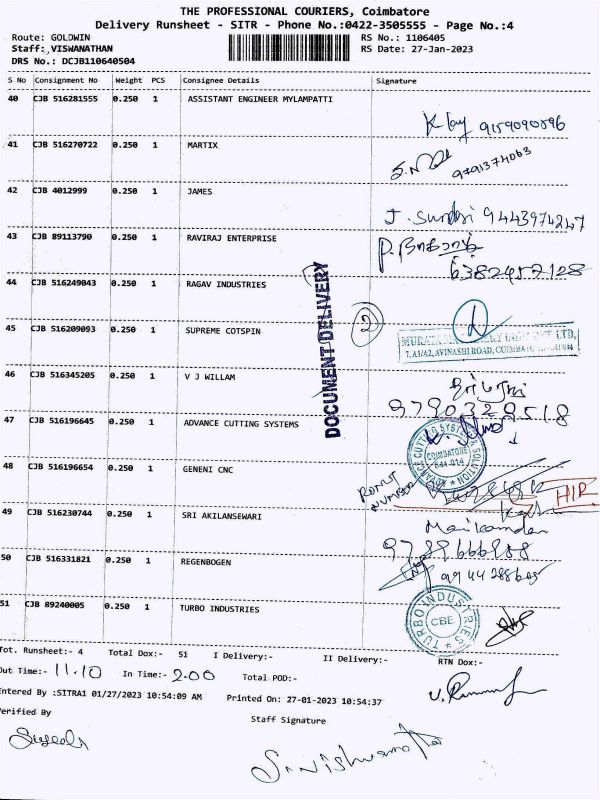 THE PROFESSIONAL COURIERS, Coimbatore
Delivery Runsheet - SITR - Phone No.:0422-3505555 - Page No.:4
Route: GOLDWIN RS No.: 1106405
Staff: VISWANATHAN RS Date: 27-Jan-2023
DRS No.: DCJB110640504
S No Consignment No Weight PCS Consignee Details Signature
40 CJB 516281555 0.250 1 ASSISTANT ENGINEER MYLAMPATTI
41 CJB 516270722 0.250 1 MARTIX
9791374063
42 CJB 4012999 0.250 1 JAMES
J. Sundari 9443974247
43 CJB 89113790 0.250 1 RAVIRAJ ENTERPRISE
6382457128
44 CJB 516249043 0.250 1 RAGAV INDUSTRIES
DOCUMENT DELIVERY
2
45 CJB 516209093 0.250 1 SUPREME COTSPIN
7, A1/A2, AVINASHI ROAD,
46 CJB 516345205 0.250 1 V J WILLAM
9790329518
47 CJB 516196645 0.250 1 ADVANCE CUTTING SYSTEMS
ADVANCE CUTTING SYSTEM SOLUTION
COIMBATORE
641 014
48 CJB 516196654 0.250 1 GENENI CNC
NUMBER
49 CJB 516230744 0.250 1 SRI AKILANSEWARI
Manikandan
9789666988
50 CJB 516331821 0.250 1 REGENBOGEN
51 CJB 89240005 0.250 1 TURBO INDUSTRIES
TURBO INDUSTRIES
CBE
Tot. Runsheet:- 4 Total Dox:- 51 I Delivery:- II Delivery:- RTN Dox:-
Out Time:- 11.10 In Time:- 2.00 Total POD:-
Entered By :SITRA1 01/27/2023 10:54:09 AM Printed On: 27-01-2023 10:54:37
Verified By Staff Signature